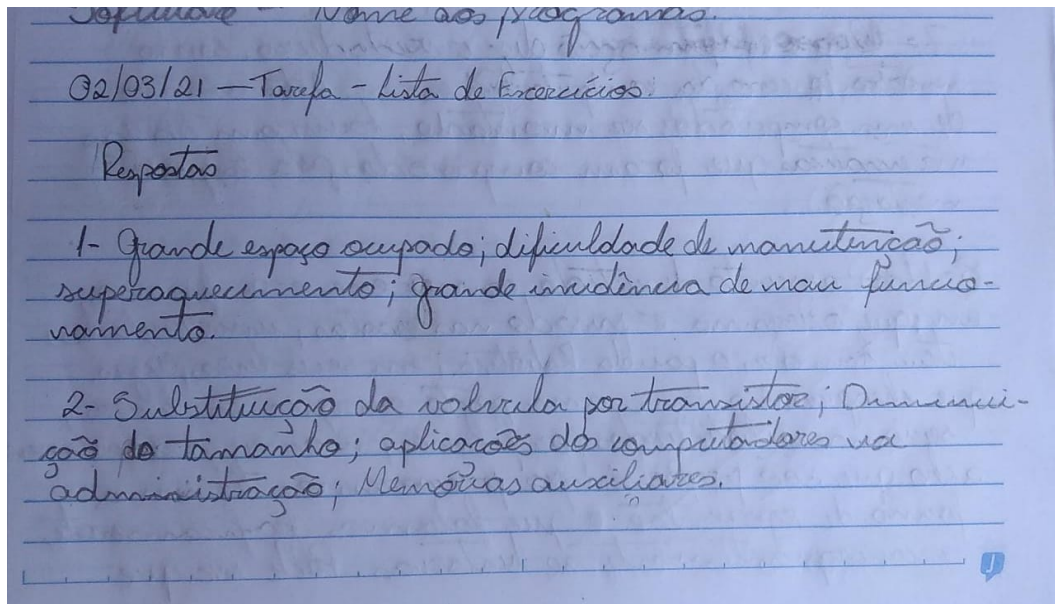 Software - Nome aos programas.
02/03/21 - Tarefa - Lista de Exercícios.
Respostas
1- Grande espaço ocupado; dificuldade de manutenção;
superaquecimento; grande incidência de mau funcio-
namento.
2- Substituição da volvula por transistor; Diminui-
ção do tamanho; aplicações dos computadores na
administração; Memórias auxiliares.